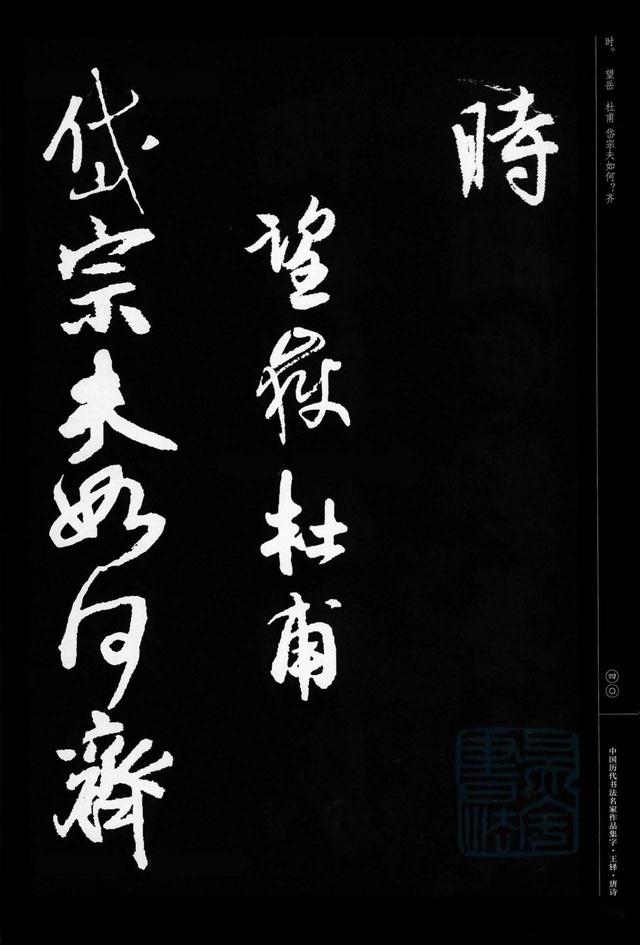 時
望嶽杜甫
岱宗夫如何齊
时。 望岳 杜甫 岱宗夫如何?齐
四〇
中国历代书法名家作品集字·王铎·唐诗